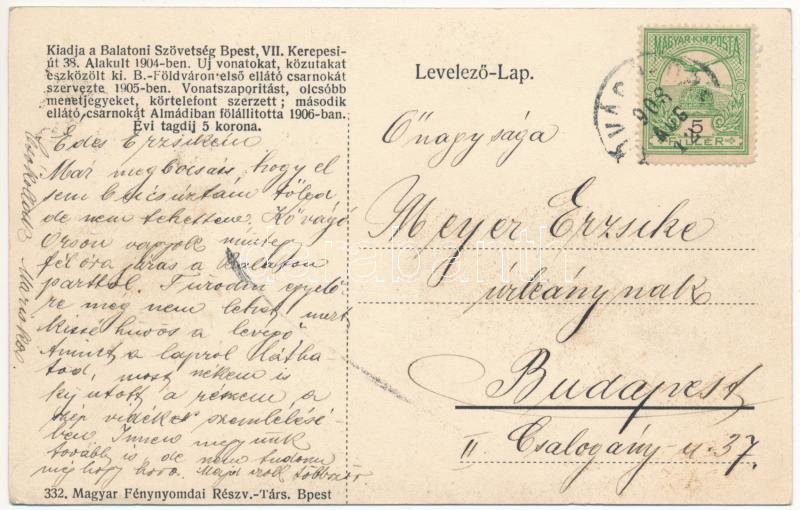 Kiadja a Balatoni Szövetség Bpest, VII. Kerepesi-
út 38. Alakult 1904-ben. Uj vonatokat, közutakat
eszközölt ki. B.-Földváron első ellátó csarnokát
szervezte 1905-ben. Vonatszaporitást, olcsóbb
menetjegyeket, körtelefont szerzett; második
ellátó csarnokát Almádiban fölállitotta 1906-ban.
Évi tagdij 5 korona.
Édes Erzsikém
Már megbocsáss, hogy el
sem búcsúztam tőled
de nem tehettem. Kővágó
Örsön vagyok mintegy
félóra járás a Balaton
parttól. Fürödni egyelő
re még nem lehet, mert
kissé hűvös a levegő
Amint a lapról láthat
tod, most nekem is
kijutott a részem, a
szép vidéket szemlélésé-
ben. Innen megyünk
tovább is de nem tudom
még hogy hova. Majd írok többször
Mariska
332. Magyar Fénynyomdai Részv.-Társ. Bpest
Levelező-Lap.
MAGYAR·KIR·POSTA
5
FILLÉR
908
AUG
Őnagysága
Meyer Erzsike
úrleánynak
Budapest
II Csalogány-u. 37.
darabanth